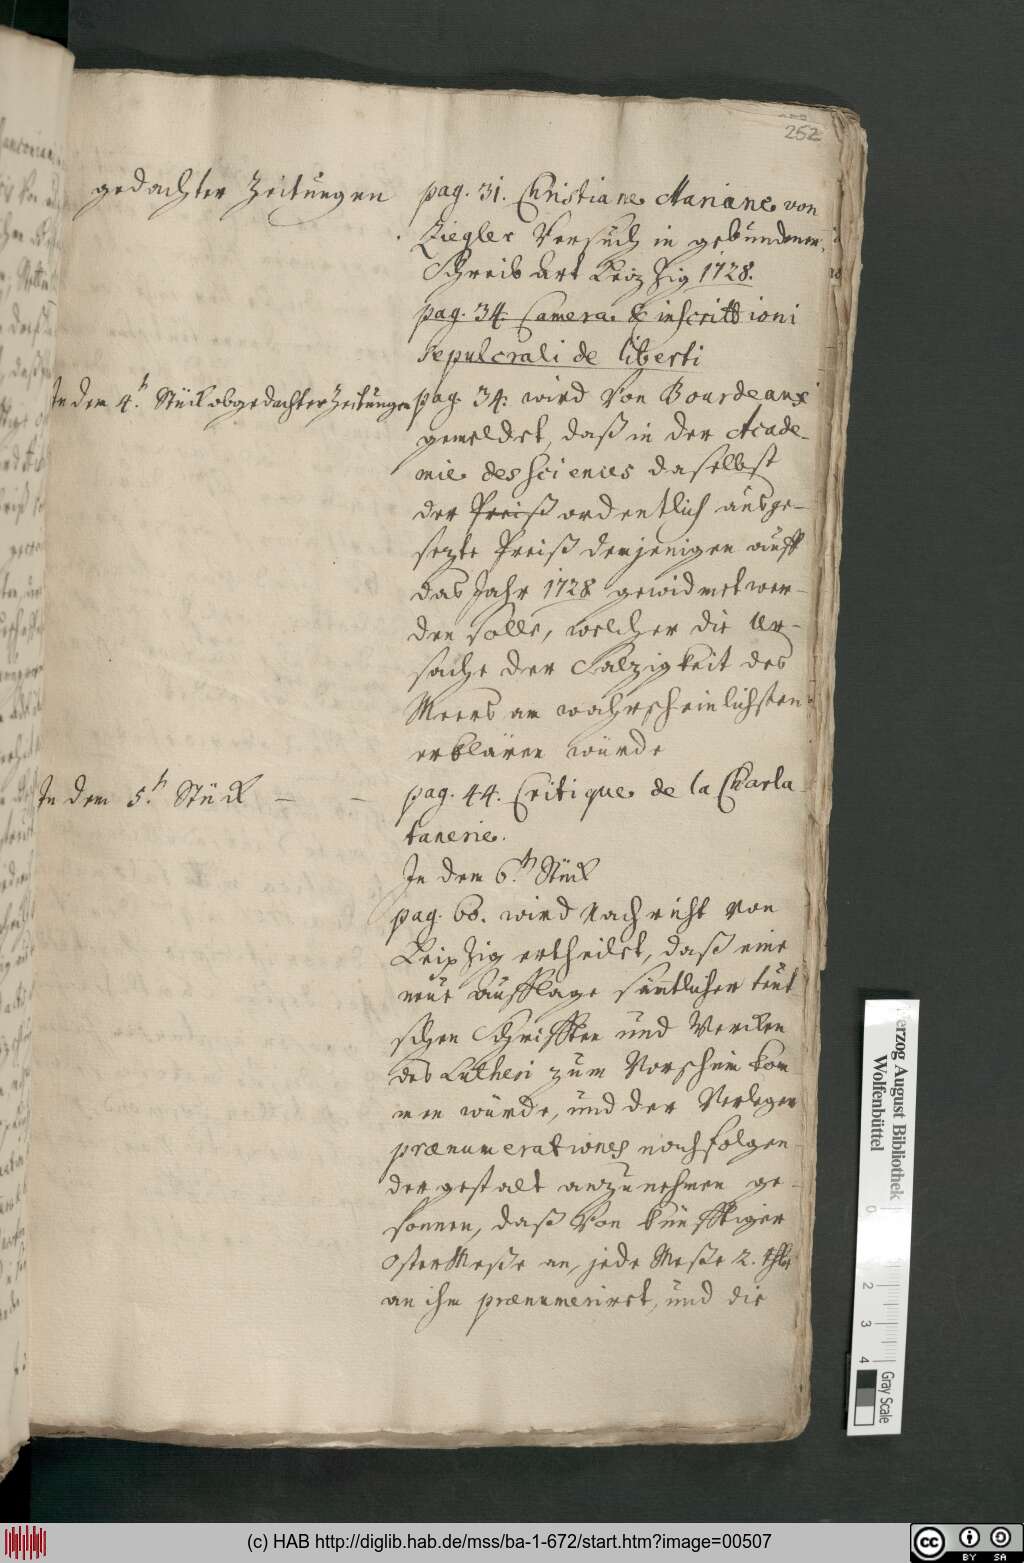 252
gedachter Zeitungen
pag. 31. Christiane Mariane von
Ziegler Versuch in gebundener
Schreib Art Leipzig 1728.
pag. 34. Camera & inscrittioni
sepulcrali de liberti
In dem 4.t Stück obgedachter Zeitungen
pag. 34: wird von Bourdeaux
gemeldet, daß in der Acade-
mie des Sciences daselbst
der Preiß ordentlich ausge-
sezte Preiß demjenigen auff
das Jahr 1728 gewidmet wer-
den solle, welcher die Ur-
sache der Salzigkeit des
Meers am wahrscheinlichsten
erklären würde
In dem 5.t Stück – –
pag. 44. Critique de la Charla-
tanerie.
In dem 6.t Stück
pag. 60. wird Nachricht von
Leipzig ertheilet, daß eine
neue Aufflage sämtlicher teut
schen Schrifften und Wercken
des Lutheri zum Vorschein kom
men würde, und der Verleger
prænumerationes nachfolgen-
der gestalt anzunehmen ge-
sonnen, daß von künfftiger
OsterMeße an, jede Meße 2. thlr
an ihm prænumeriret, und die
Herzog August Bibliothek
Wolfenbüttel
0
2
3
4
Gray Scale
(c) HAB http://diglib.hab.de/mss/ba-1-672/start.htm?image=00507
cc BY SA